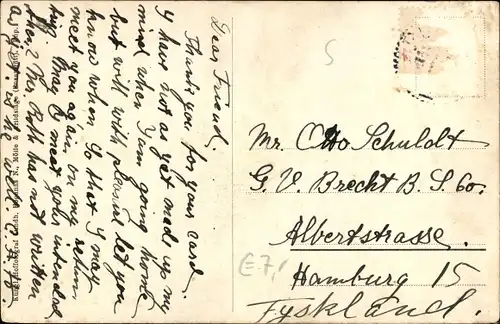 Dear Friend,
Thank you for your card.
I have not as yet made up my
mind when I am going home
but will with pleasure let you
know when. So that I may
meet you again, on my return
trip. May I meet your intended
then? Mrs Roth has not written
is she well?
Mr. Otto Schuldt
G. V. Brecht B. S. Co.
Albertstrasse.
Hamburg 15
Tyskland.
E7,-
S